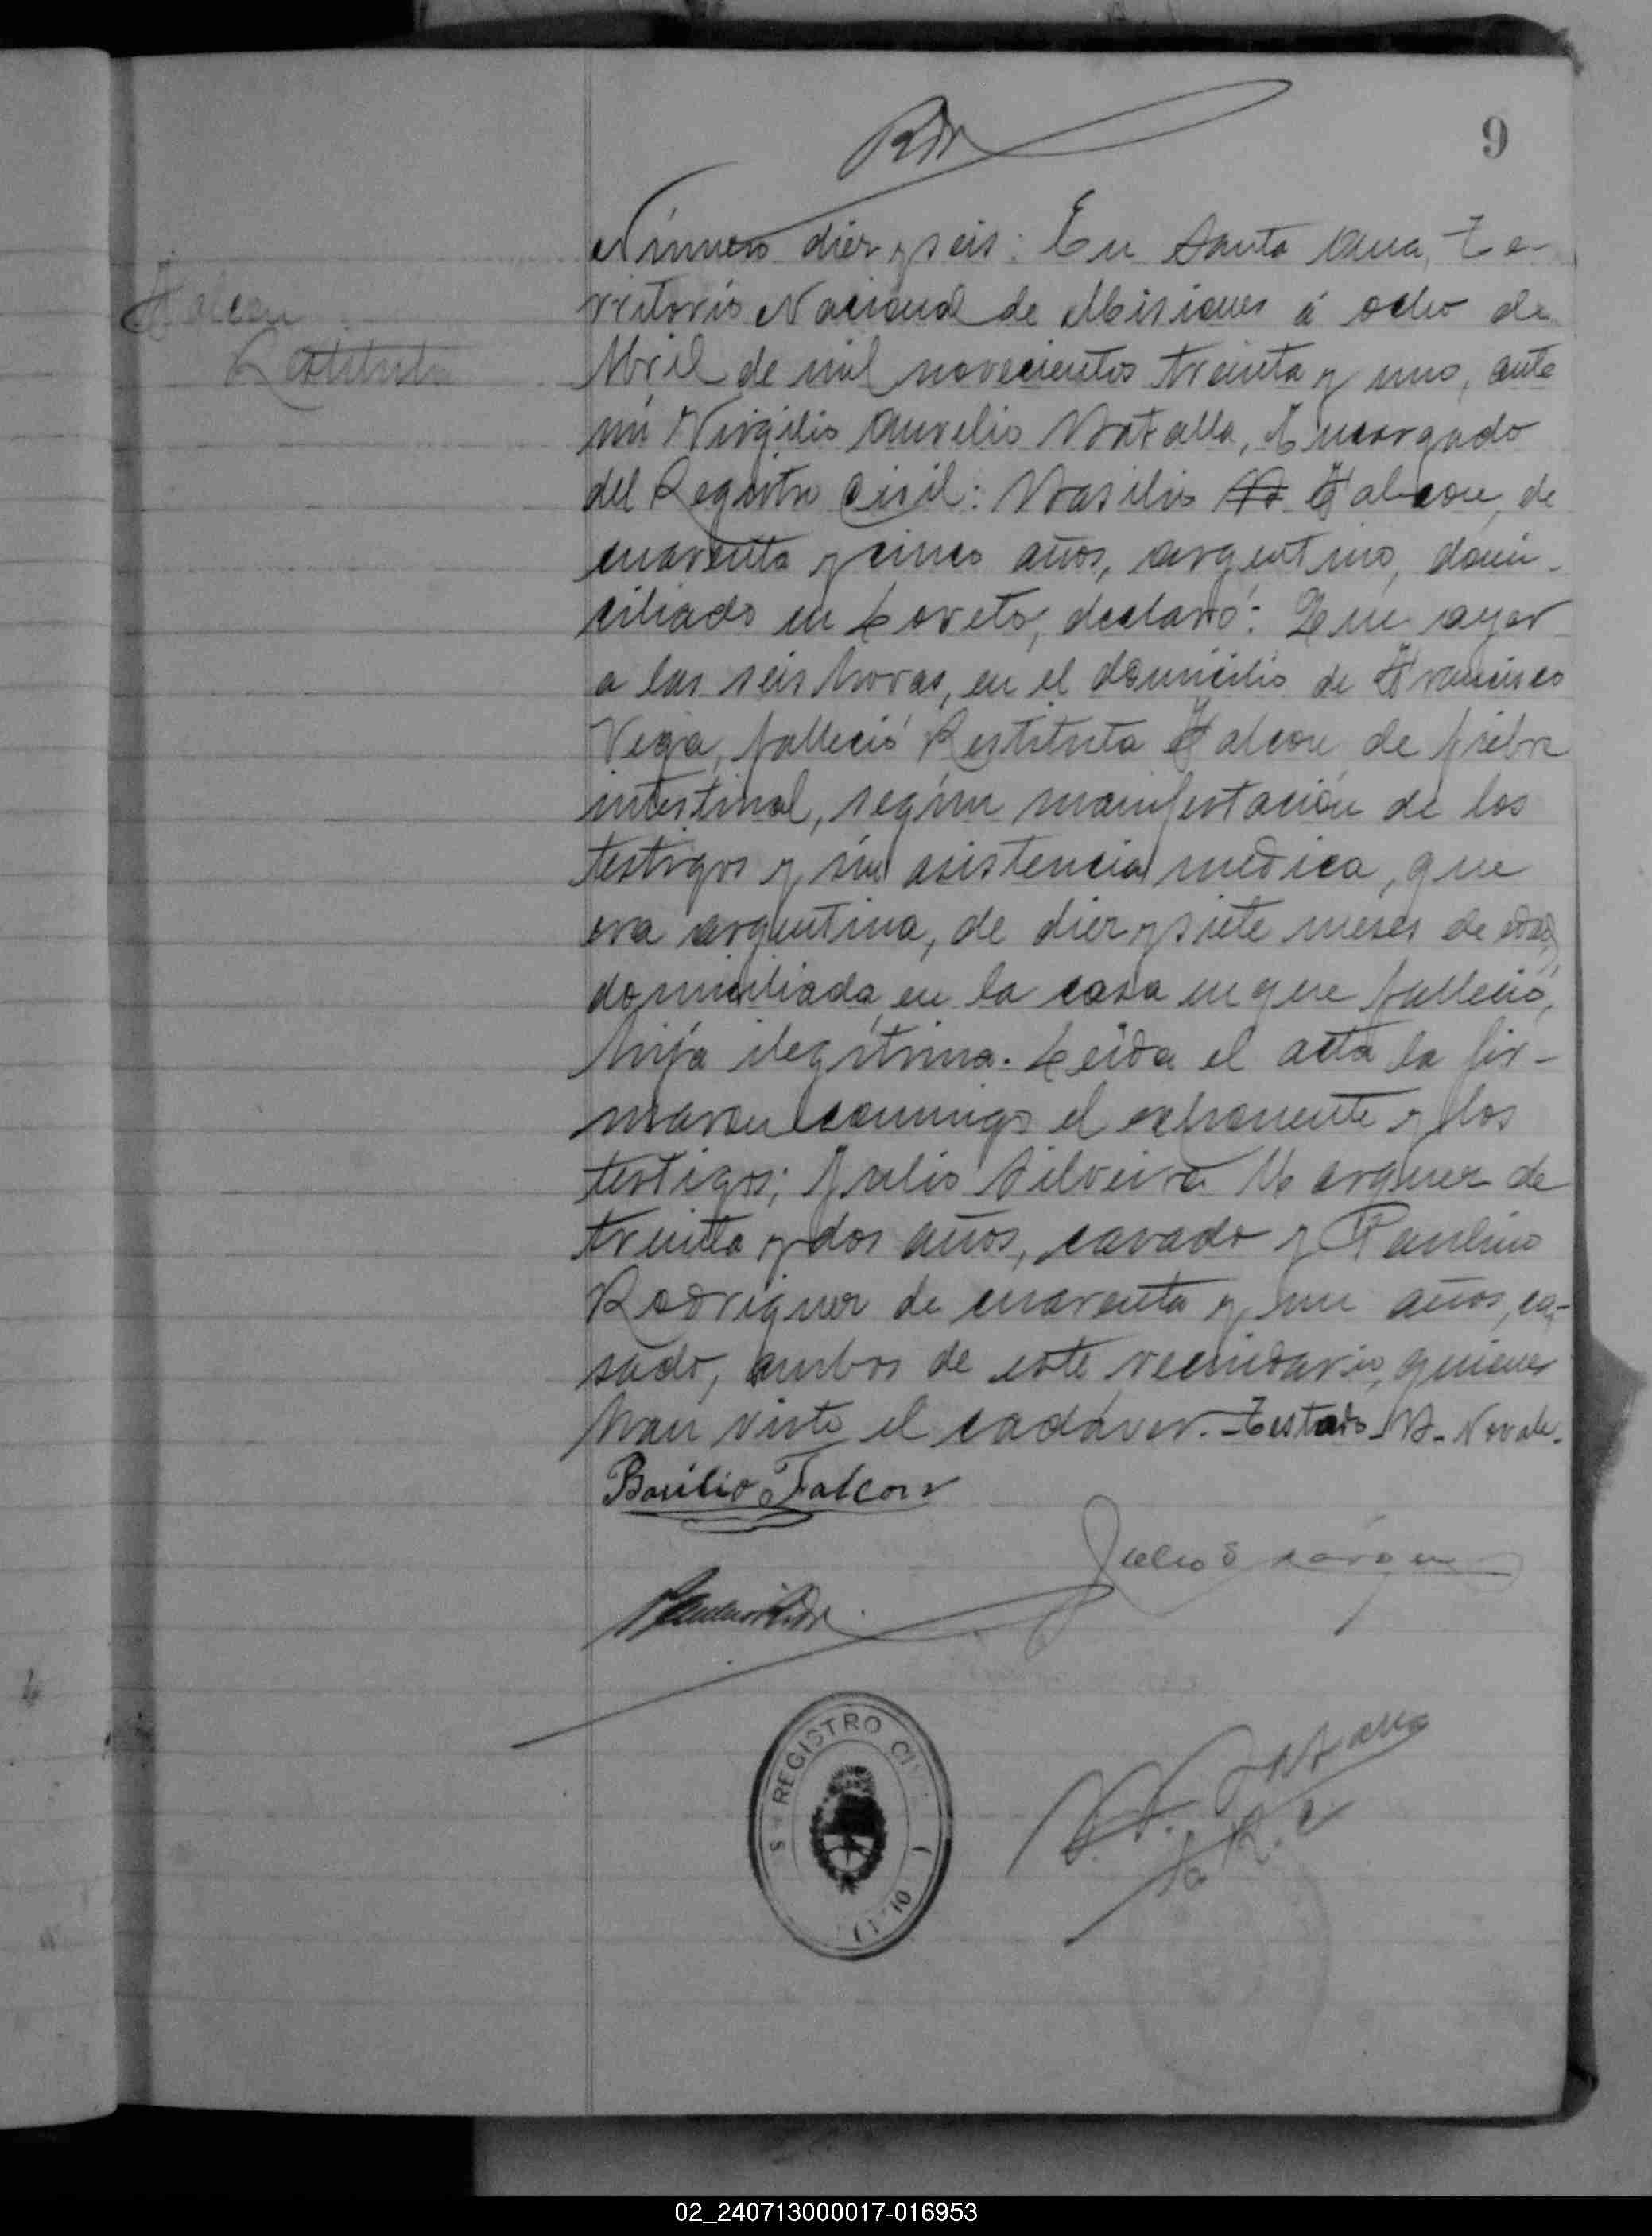 9
Falcon
Restituta
Número diez y seis: En Santa Ana, Te-
rritorio Nacional de Misiones á ocho de
Abril de mil novecientos treinta y uno, ante
mí Virgilio Aurelio Batalla, Encargado
del Registro Civil: Basilio B Falcon, de
cuarenta y cinco años, argentino, domi-
ciliado en Loreto, declaró: Que ayer
a las seis horas, en el domicilio de Francisco
Vega, falleció Restituta Falcon de fiebre
intestinal, según manifestación de los
testigos y sin asistencia medica, que
era argentina, de diez y siete meses de edad,
domiciliada en la casa en que falleció,
hija ilegítima. Leida el acta la fir-
maron conmigo el exponente y los
testigos; Julio Silveira Marquez de
treinta y dos años, casado y Paulino
Rodriguez de cuarenta y un años, ca-
sado, ambos de este vecindario, quienes
han visto el cadáver. Testado-B-No vale.
Basilio Falcon
Julio S
REGISTRO CIVIL